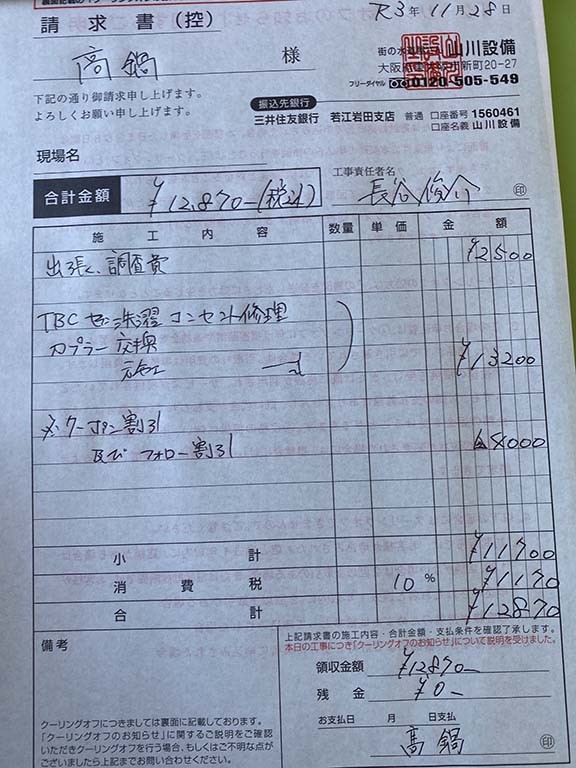 請求書(控)
R3年11月28日
高鍋 様
街の水
山川設備
新町20-27
フリーダイヤル 0120-505-549
下記の通り御請求申し上げます。
よろしくお願い申し上げます。
振込先銀行
三井住友銀行 若江岩田支店 普通 口座番号 1560461
口座名義 山川設備
現場名
工事責任者名
合計金額 ¥12,870-(税込)
印
施工内容 数量 単価 金額
出張、調査費 ¥2500
洗濯コンセント修理
カプラー交換
¥13200
※クーポン割引
及びフォロー割引 4000
小計 ¥11700
消費税 10% ¥1170
合計 ¥12870
備考
上記請求書の施工内容・合計金額・支払条件を確認了承します。
本日の工事につき「クーリングオフのお知らせ」について説明を受けました。
領収金額 ¥12870-
残金 ¥0-
お支払日 月 日支払
高鍋 印
クーリングオフにつきましては裏面に記載しております。
「クーリングオフのお知らせ」に関するご説明をご確認
いただきクーリングオフを行う場合、もしくはご不明な点が
ございましたら上記までお問い合わせください。